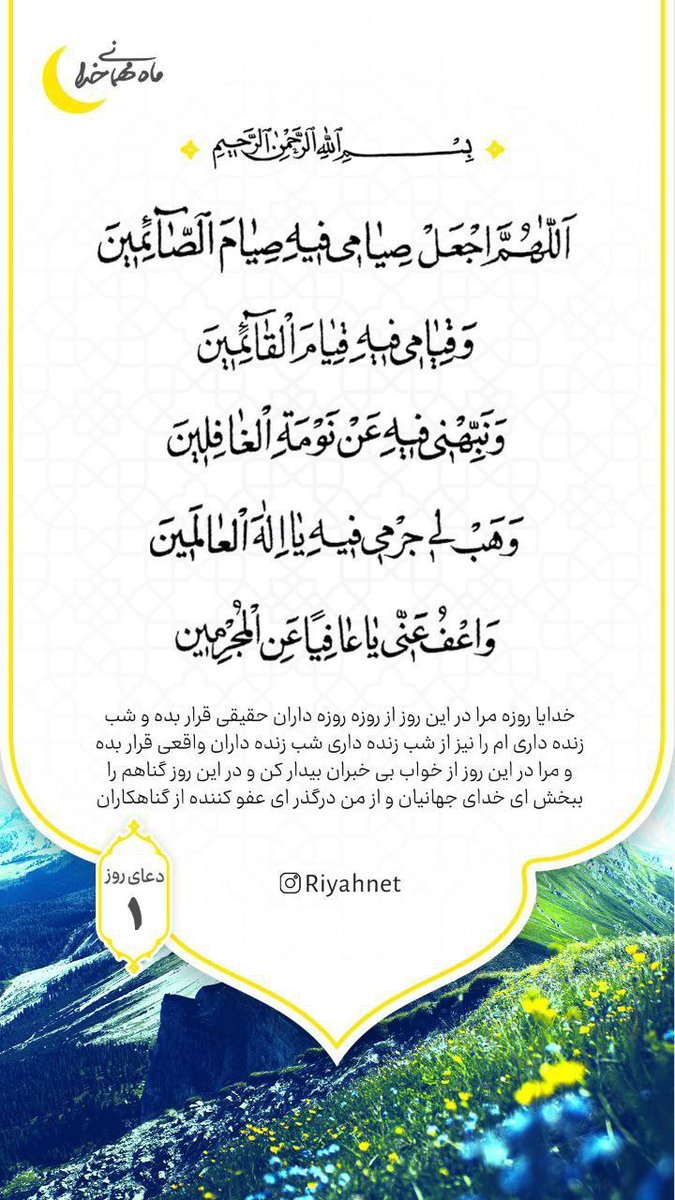 ماه مهمانی خدا
بِسْمِ ٱللَّهِ ٱلرَّحْمَٰنِ ٱلرَّحِيمِ
اَللّٰهُمَّ اجْعَلْ صِيٰامي فيهِ صِيٰامَ الصّٰآئِمينَ
وَ قِيٰامي فيهِ قِيٰامَ الْقٰآئِمينَ
وَ نَبِّهْني فيهِ عَنْ نَوْمَةِ الْغٰافِلينَ
وَ هَبْ لي جُرْمي فيهِ يٰا اِلٰهَ الْعٰالَمينَ
وَ اعْفُ عَنّي يٰا عٰافِيًا عَنِ الْمُجْرِمينَ
خدایا روزه مرا در این روز از روزه روزه داران حقیقی قرار بده و شب
زنده داری ام را نیز از شب زنده داری شب زنده داران واقعی قرار بده
و مرا در این روز از خواب بی خبران بیدار کن و در این روز گناهم را
ببخش ای خدای جهانیان و از من درگذر ای عفو کننده از گناهکاران
دعای روز
۱
Riyahnet